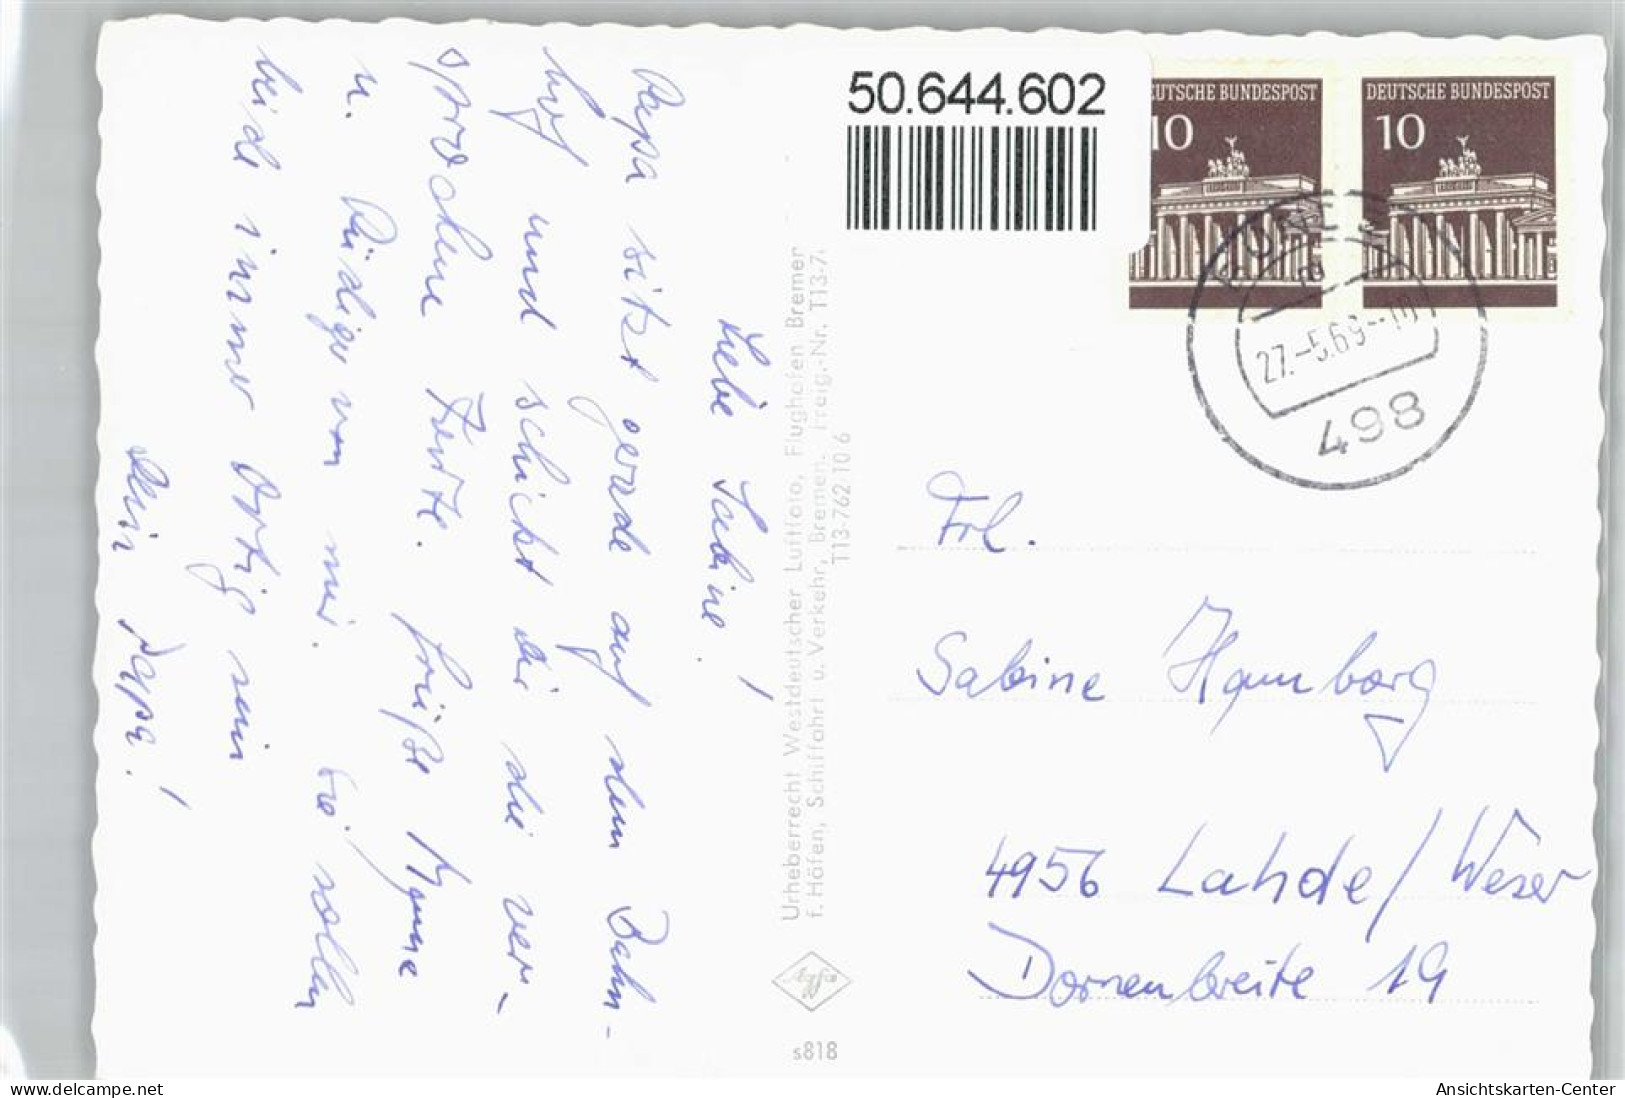 Liebe Sabine!
Papa sitzt gerade auf dem Bahn-
hof und schickt dir die ver-
sprochene Karte. Grüße Mama
u. Rüdiger von mir. Sie sollen
beide immer artig sein
Dein Papa!
Urheberrecht Westdeutscher Luftfoto, Flughafen Bremen
f. Häfen, Schiffahrt u. Verkehr, Bremen. Freig.-Nr. T13-7.
T13-762 10 6
Agfa
s818
50.644.602
DEUTSCHE BUNDESPOST
10
DEUTSCHE BUNDESPOST
10
27.-5.69
498
Frl.
Sabine Hamborg
4956 Lahde/Weser
Dornenbreite 19
www.delcampe.net
Ansichtskarten-Center